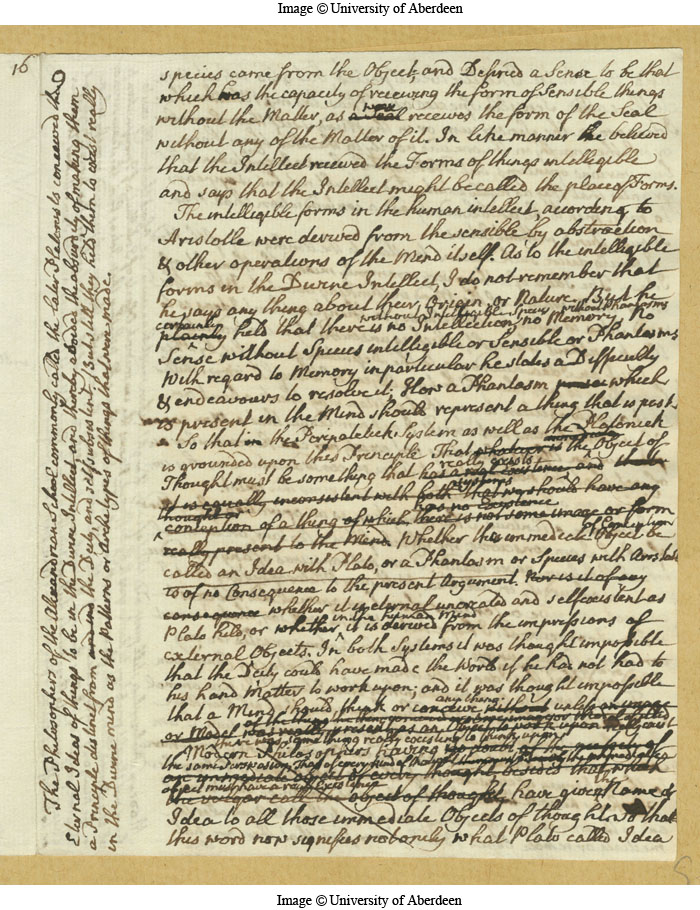 Image © University of Aberdeen
16
species came from the Object, and Defined a Sense to be that
which was the capacity of receiving the form of Sensible things
without the Matter, as a Seal wax receives the form of the Seal
without any of the Matter of it. In like manner he believed
that the Intellect received the Forms of things intelligible
and says that the Intellect might be called the place of Forms.
The intelligible forms in the human intellect, according to
Aristotle were derived from the sensible by abstraction
& other operations of the Mind itself. As to the intelligible
forms in the Divine Intellect, I do not remember that
he says any thing about their Origin or Nature. But he
certainly without Intelligible Species without Phantasms
plainly held that there is no Intellection, no Memory, No
Sense without Species intelligible or Sensible or Phantasms
With regard to Memory in particular he states a Difficulty
& endeavours to resolve it, How a Phantasm which
is present in the Mind should represent a thing that is past.
So that in the Peripatetick System as well as the Platonick
is grounded upon this Principle That the Object of
really exists
Thought must be something that has a real existence and
systems
it is equally inconsistent with both that we should have any
thought or has no existence
conception of a thing of which there is not some image or form
of Conception
really present to the Mind. Whether this immediate Object be
called an Idea with Plato, or a Phantasm or Species with Aristotle
is of no Consequence to the present Argument. Nor is it of any
consequence whether it is eternal uncreated and selfexistent as
in the human Mind
Plato held, or whether it is derived from the impressions of
external Objects. In both Systems it was thought impossible
that the Deity could have made the World if he had not had to
his hand Matter to work upon; and it was thought impossible
any thing
that a Mind should think or conceive without unless an image
or Model
there was some thing really existing to think upon
Modern Philosophers having
the same Persuasion, That of every kind of thought
an immediate object of every thought besides that which
object must have a real existence
the vulgar call the object of thought, have given the Name of
Idea to all those immediate Objects of thought. So that
this word now signifies not only what Plato called Idea
The Philosophers of the Alexandrian School commonly called the later Platonists conceived the
Eternal Ideas of things to be in the Divine Intellect and thereby avoided the absurdity of making them
a Principle distinct from the Deity, and self subsistent; But still they held them to exist really
in the Divine mind as the Patterns or Archetypes of things that were made.
Image © University of Aberdeen